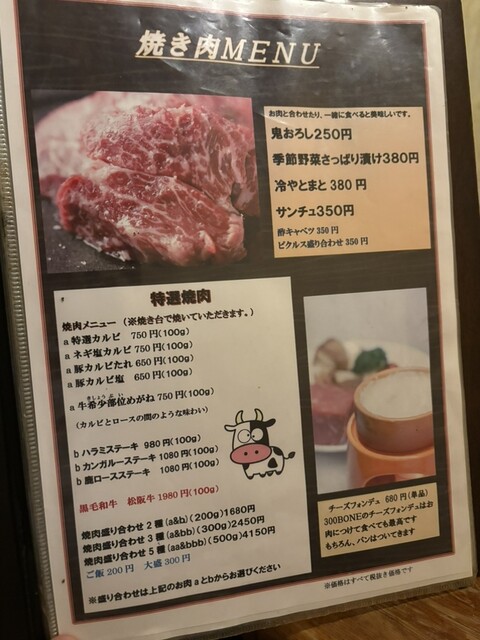 焼き肉MENU
お肉と合わせたり、一緒に食べると美味しいです。
鬼おろし250円
季節野菜さっぱり漬け380円
冷やとまと 380 円
サンチュ350円
酢キャベツ 350 円
ピクルス盛り合わせ 350 円
特選焼肉
焼肉メニュー（※焼き台で焼いていただきます。）
a 特選カルビ 750 円(100g)
a ネギ塩カルビ 750 円(100g)
a 豚カルビたれ 650 円(100g)
a 豚カルビ塩 650 円(100g)
きしょうぶい
a 牛希少部位めがね 750 円(100g)
（カルビとロースの間のような味わい）
b ハラミステーキ 980 円(100g)
b カンガルーステーキ 1080 円(100g)
b 鹿ロースステーキ 1080 円(100g)
黒毛和牛 松阪牛 1980 円(100g)
焼肉盛り合わせ 2 種 (a&b) (200g) 1680円
焼肉盛り合わせ 3 種 (a&bb) (300g) 2450円
焼肉盛り合わせ 5 種 (aa&bbb) (500g) 4150円
ご飯 200 円 大盛 300 円
※盛り合わせは上記のお肉 a と b からお選びください
チーズフォンデュ 680 円(単品)
300BONEのチーズフォンデュはお
肉につけて食べても最高です
もちろん、パンはついてきます
※価格はすべて税抜き価格です